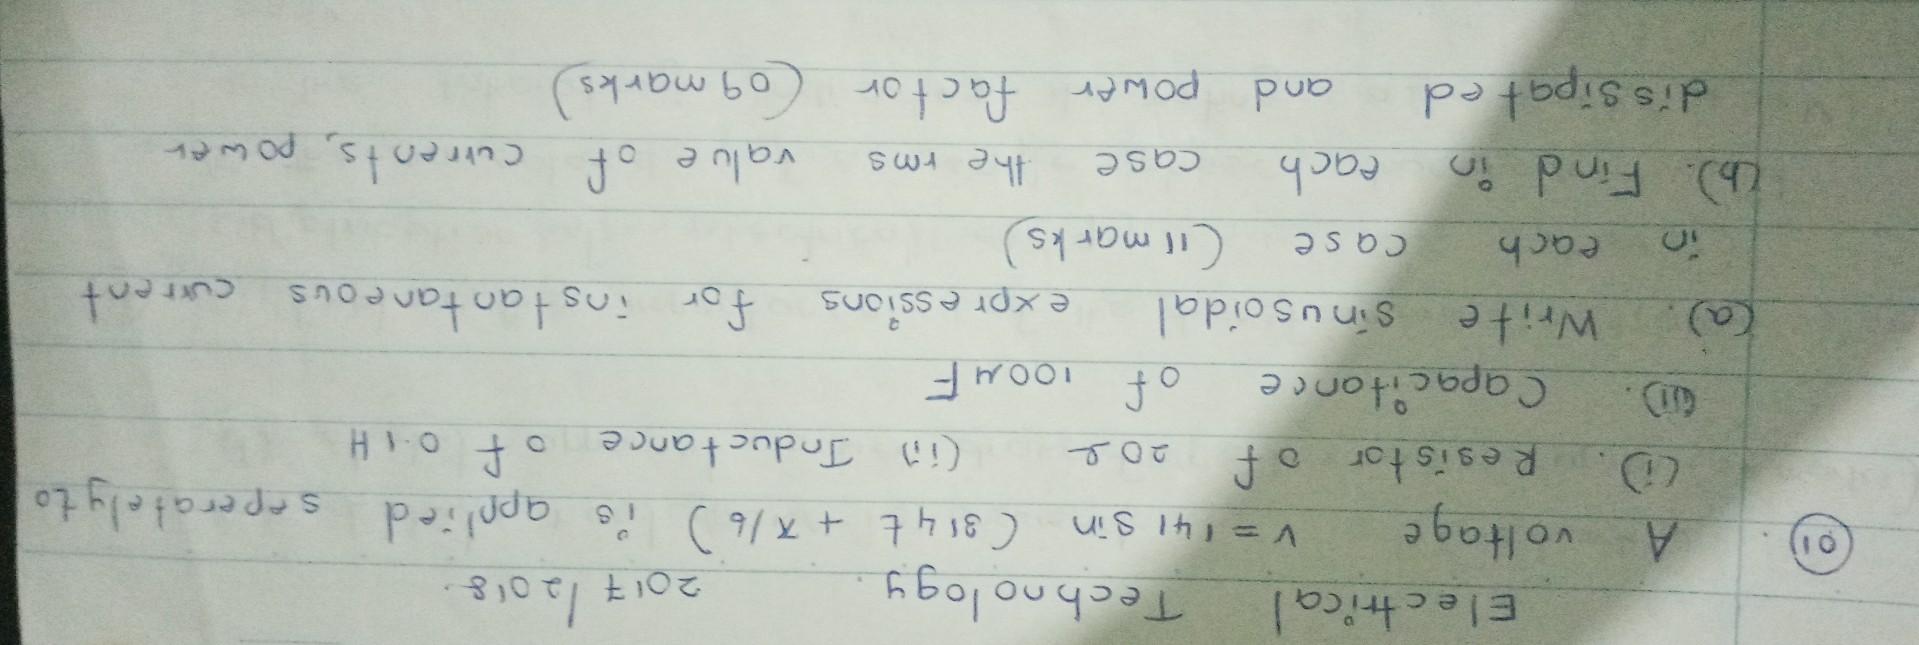 Electrical Technology. 2017/2018.
01. A voltage v = 141 sin (314t + π/6) is applied seperately to
(i). Resistor of 20Ω (ii) Inductance of 0.1H
(iii). Capacitance of 100μF
(a). Write sinusoidal expressions for instantaneous current
in each case (11 marks)
(b). Find in each case the rms value of currents, power
dissipated and power factor (09 marks)